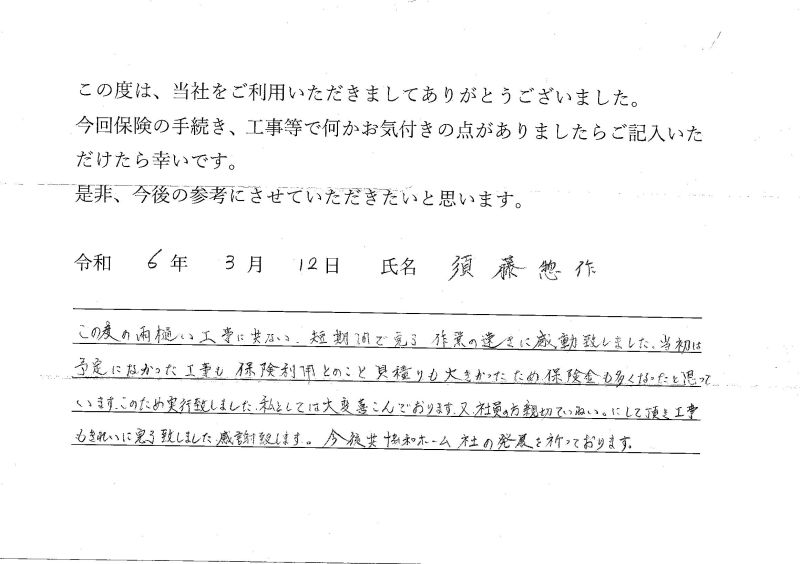 この度は、当社をご利用いただきましてありがとうございました。
今回保険の手続き、工事等で何かお気付きの点がありましたらご記入いた
だけたら幸いです。
是非、今後の参考にさせていただきたいと思います。
令和 6年 3月 12日 氏名 須藤惣作
この度の雨樋い工事に共ない、短期間で完る 作業の速さに感動致しました。当初は
予定になかった工事も 保険利用とのこと 見積りも大きかったため、保険金も多くなったと思って
います。このため実行致しました。私としては大変喜こんでおります。又、社員の方親切ていねい。にして頂き工事
もきれいに完了致しました感謝致します。 今後共協和ホーム社の発展を祈っております。